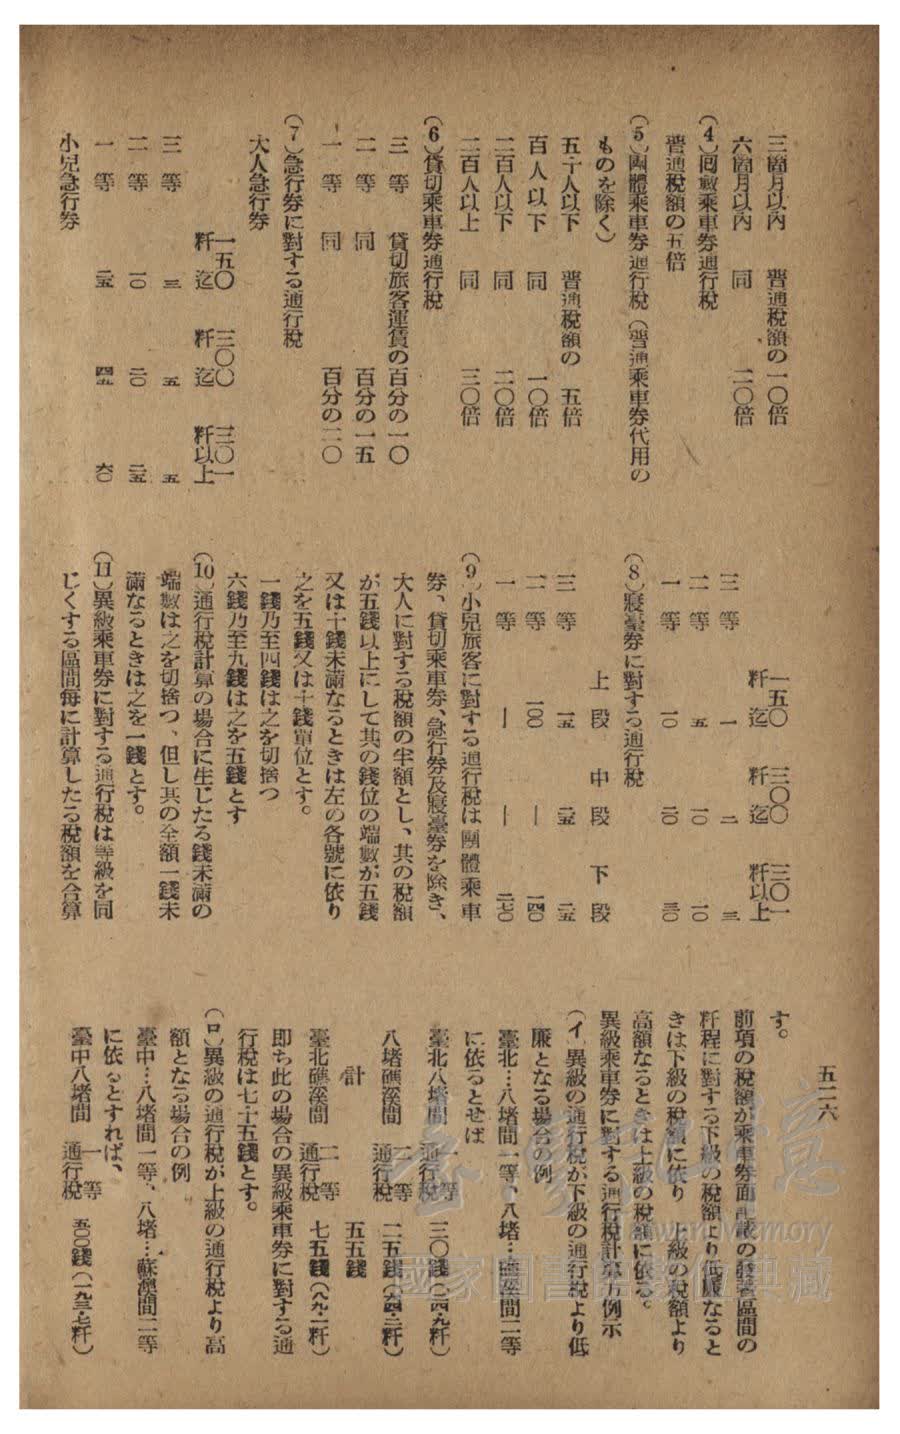 五二六
三箇月以內　普通稅額の一〇倍
六箇月以內　同　二〇倍
(4) 囘數乘車券通行稅
普通稅額の五倍
(5) 團體乘車券通行稅（普通乘車券代用の
ものを除く）
五十人以下　普通稅額の　五倍
百人以下　同　一〇倍
二百人以下　同　二〇倍
二百人以上　同　三〇倍
(6) 貸切乘車券通行稅
三等　貸切旅客運賃の百分の一〇
二等　同　百分の一五
一等　同　百分の二〇
(7) 急行券に對する通行稅
大人急行券
一五〇粁迄　三〇〇粁迄　三〇一粁以上
三等　三　五　五
二等　一〇　二〇　二五
一等　二五　四五　六〇
小兒急行券
一五〇粁迄　三〇〇粁迄　三〇一粁以上
三等　一　二　三
二等　五　一〇　一〇
一等　一〇　二〇　三〇
(8) 寢臺券に對する通行稅
上段　中段　下段
三等　一五　二五　二五
二等　一〇〇　—　一四〇
一等　—　—　二七〇
(9) 小兒旅客に對する通行稅は團體乘車
券、貸切乘車券、急行券及寢臺券を除き、
大人に對する稅額の半額とし、其の稅額
が五錢以上にして其の錢位の端數が五錢
又は十錢未滿なるときは左の各號に依り
之を五錢又は十錢單位とす。
一錢乃至四錢は之を切捨つ
六錢乃至九錢は之を五錢とす
(10) 通行稅計算の場合に生じたる錢未滿の
端數は之を切捨つ、但し其の全額一錢未
滿なるときは之を一錢とす。
(11) 異級乘車券に對する通行稅は等級を同
じくする區間每に計算したる稅額を合算
す。
前項の稅額が乘車券面記載の發著區間の
粁程に對する下級の稅額より低廉なると
きは下級の稅額に依り　上級の稅額より
高額なるときは上級の稅額に依る。
異級乘車券に對する通行稅計算方例示
(イ) 異級の通行稅が下級の通行稅より低
廉となる場合の例
臺北…八堵間一等、八堵…礁溪間二等
に依るとせば
臺北八堵間　一等通行稅　三〇錢（二四・九粁）
八堵礁溪間　二等通行稅　二五錢（六四・二粁）
計　五五錢
臺北礁溪間　二等通行稅　七五錢（八九・一粁）
卽ち此の場合の異級乘車券に對する通
行稅は七十五錢とす。
(ロ) 異級の通行稅が上級の通行稅より高
額となる場合の例
臺中…八堵間一等、八堵…蘇澳間二等
に依るとすれば、
臺中八堵間　一等通行稅　五〇〇錢（一九三・七粁）
臺灣記憶
Taiwan Memory
國家圖書館數位典藏